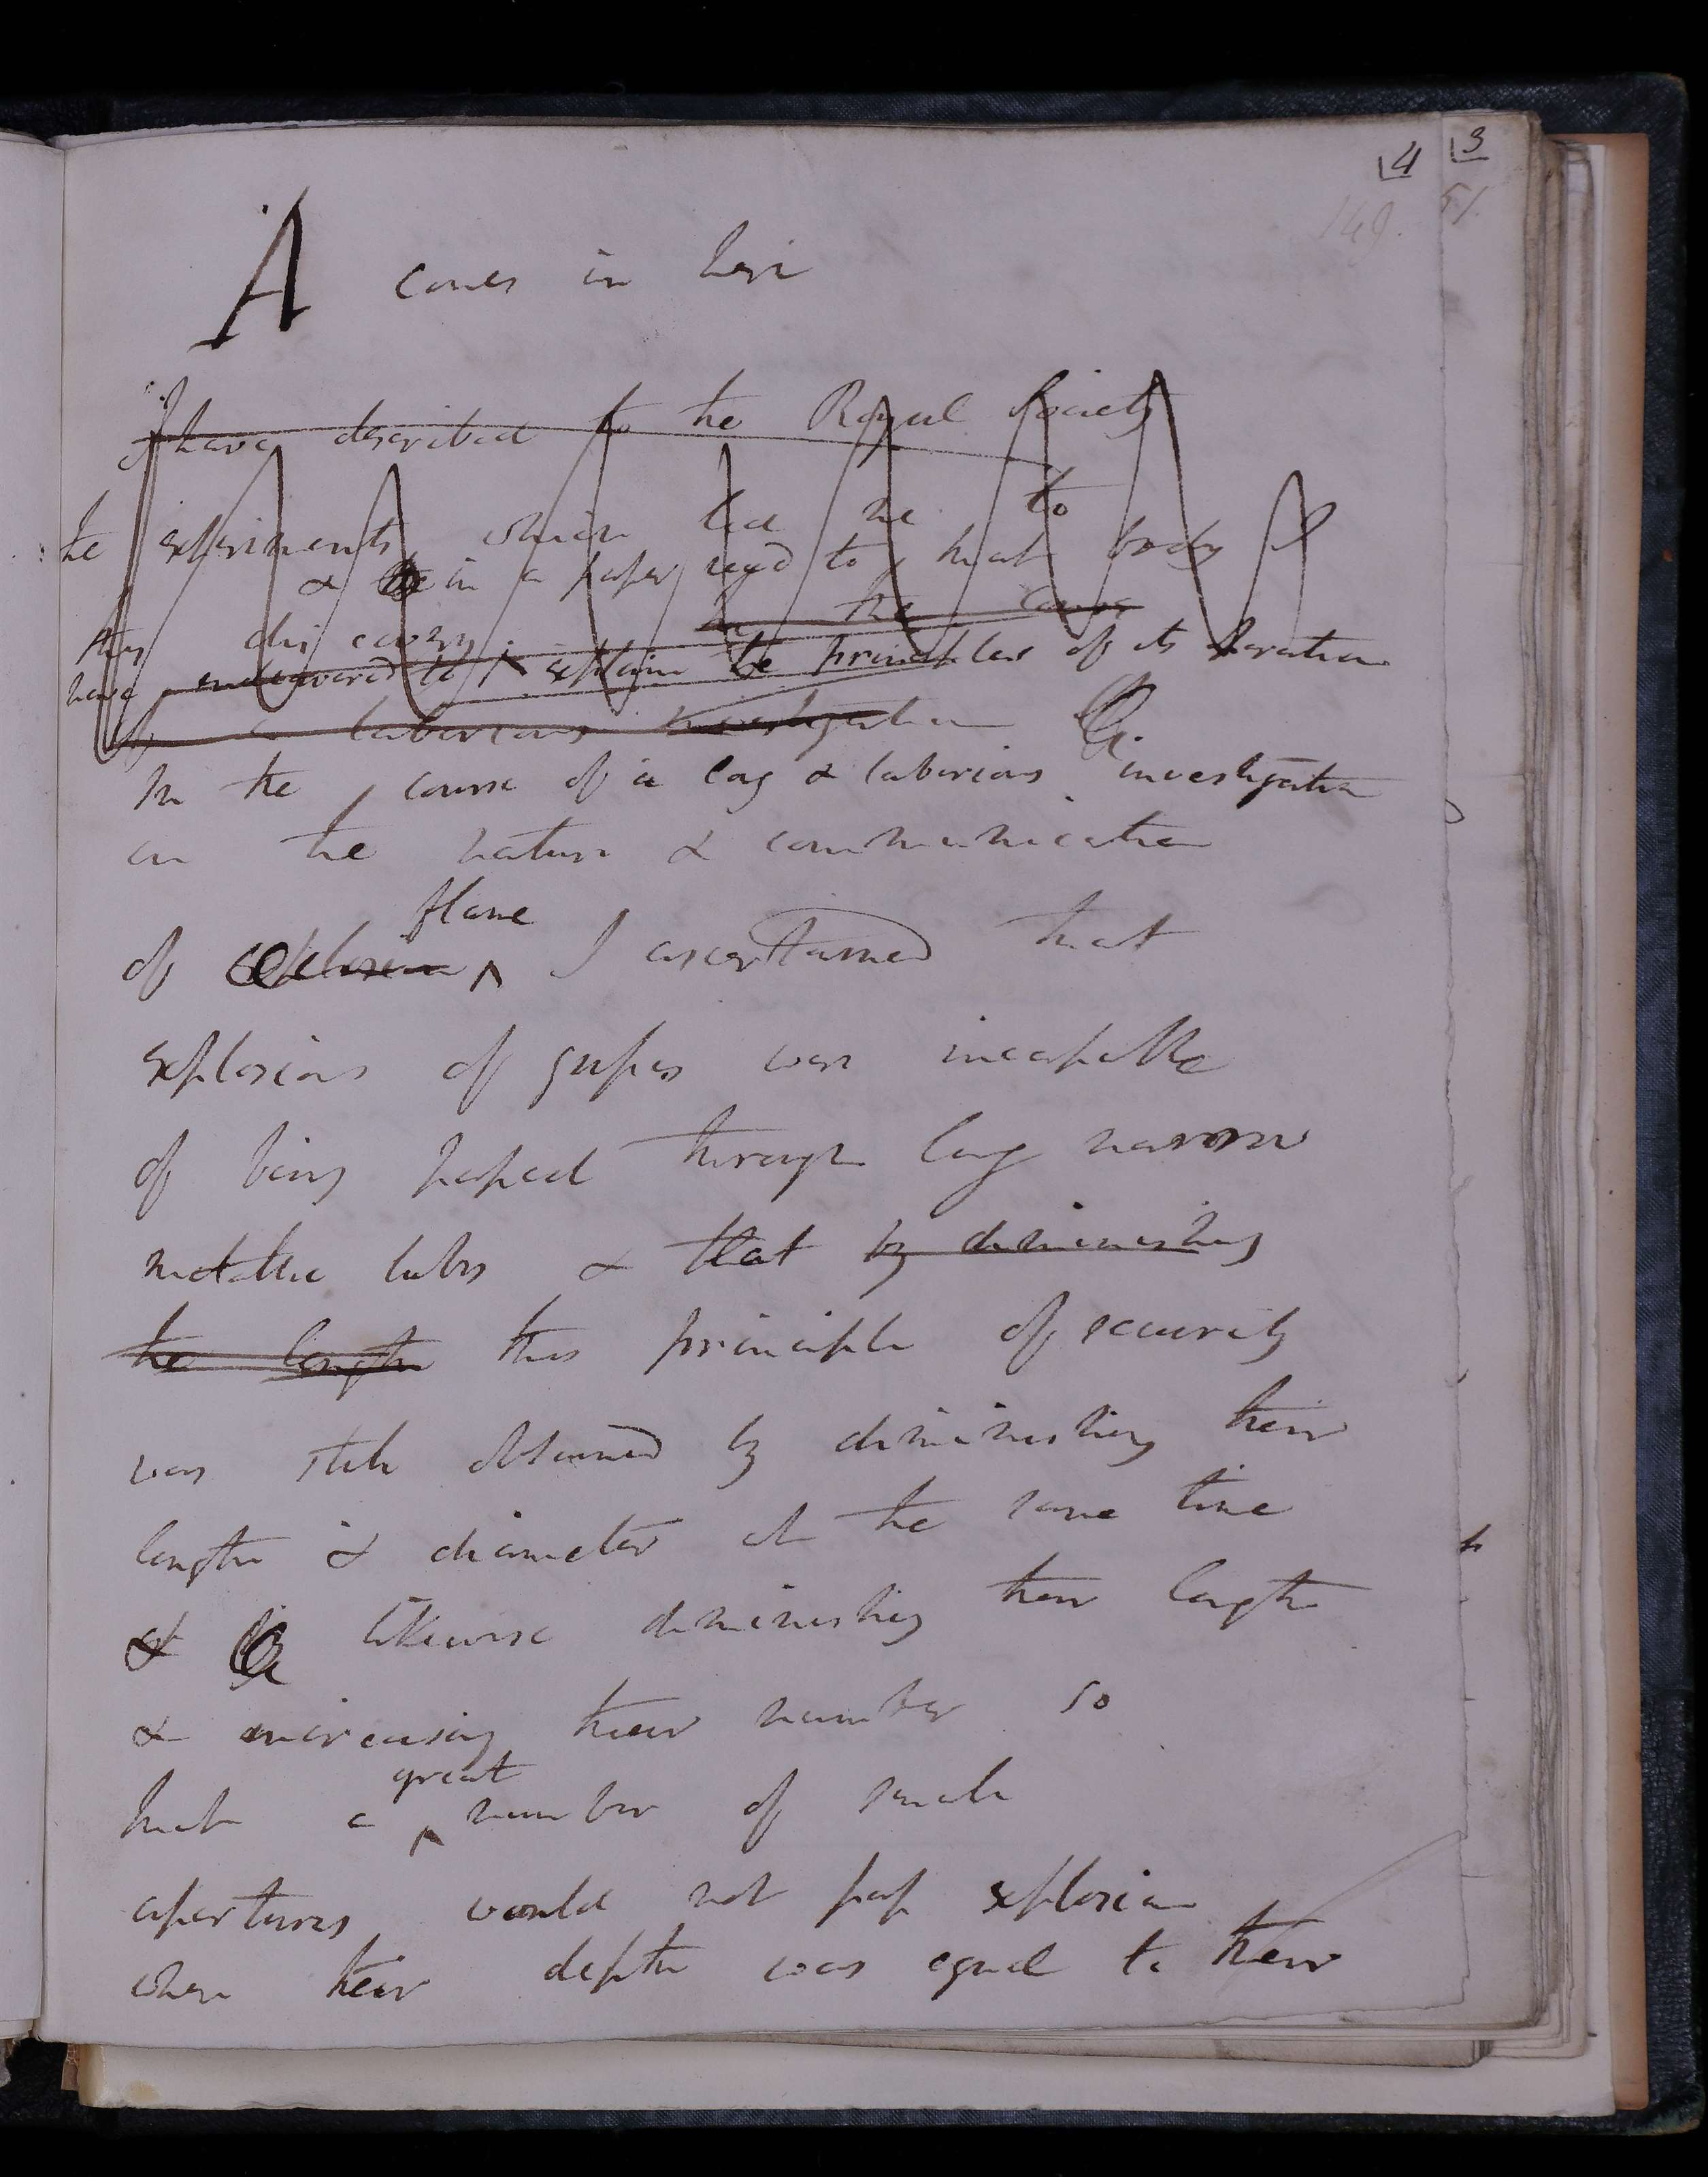 4
3
149.
51.
A comes in here
I have described to the Royal Society
the experiments which led me to
& in a paper read to that body
this discovery in the course
have endeavored to explain the principles of its operation
by a laborious investigation
In the course of a long & laborious investigation
on the nature & communication
flame
of explosion I ascertained that
explosions of gases were incapable
of being passed through long narrow
metallic tubes & that by diminishing
the length this principle of security
was still obtained by diminishing their
length & diameter at the same time
& likewise diminishing their length
& increasing their number so
great
that a number of small
apertures would not pass explosion
when their depth was equal to their